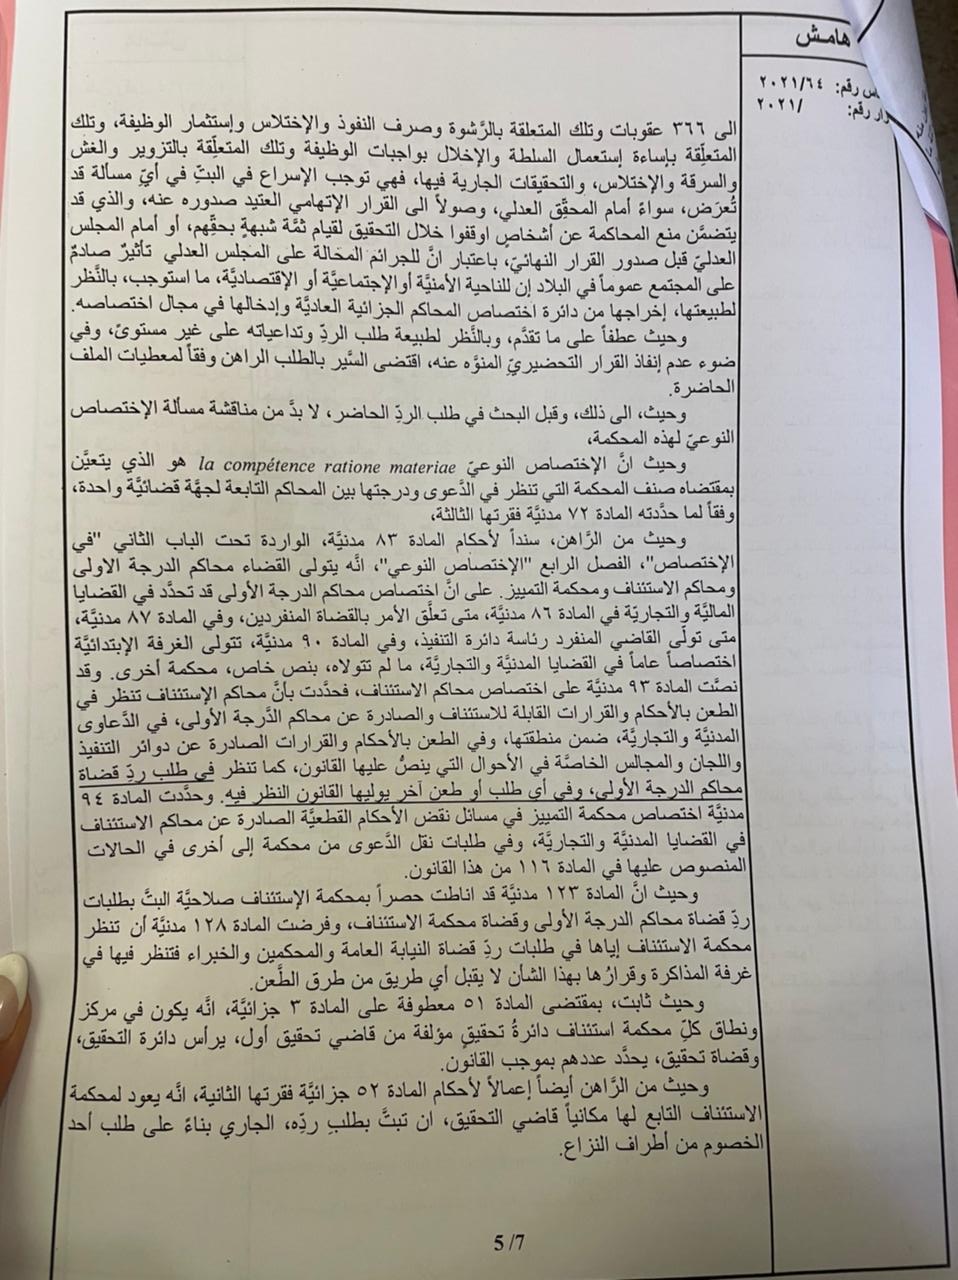 هامـش
اس رقم: ٢٠٢١/٦٤
رار رقم: /٢٠٢١
الى ٣٦٦ عقوبات وتلك المتعلقة بالرَّشوة وصرف النفوذ والإختلاس وإستثمار الوظيفة، وتلك
المتعلِّقة بإساءة إستعمال السلطة والإخلال بواجبات الوظيفة وتلك المتعلِّقة بالتزوير والغش
والسرقة والإختلاس، والتحقيقات الجارية فيها، فهي توجب الإسراع في البتّ في أيّ مسألة قد
تُعرَض، سواءً أمام المحقِّق العدلي، وصولاً الى القرار الإتهامي العتيد صدوره عنه، والذي قد
يتضمَّن منع المحاكمة عن أشخاص اوقفوا خلال التحقيق لقيام ثمَّة شبهةٍ بحقِّهم، أو أمام المجلس
العدليّ قبل صدور القرار النهائيّ، باعتبار انَّ للجرائم المحالة على المجلس العدلي تأثيرٌ صادمٌ
على المجتمع عموماً في البلاد إن للناحية الأمنيَّة أوالإجتماعيَّة أو الإقتصاديَّة، ما استوجب، بالنَّظر
لطبيعتها، إخراجها من دائرة اختصاص المحاكم الجزائية العاديَّة وإدخالها في مجال اختصاصه.
وحيث عطفاً على ما تقدَّم، وبالنَّظر لطبيعة طلب الردِّ وتداعياته على غير مستوىً، وفي
ضوء عدم إنفاذ القرار التحضيريّ المنوَّه عنه، اقتضى السَّير بالطلب الراهن وفقاً لمعطيات الملف
الحاضرة.
وحيث، الى ذلك، وقبل البحث في طلب الردِّ الحاضر، لا بدَّ من مناقشة مسألة الإختصاص
النوعيّ لهذه المحكمة،
وحيث انَّ الإختصاص النوعيّ la compétence ratione materiae هو الذي يتعيَّن
بمقتضاه صنف المحكمة التي تنظر في الدَّعوى ودرجتها بين المحاكم التابعة لجهَّة قضائيَّة واحدة،
وفقاً لما حدَّدته المادة ٧٢ مدنيَّة فقرتها الثالثة،
وحيث من الرَّاهن، سنداً لأحكام المادة ٨٣ مدنيَّة، الواردة تحت الباب الثاني "في
الإختصاص"، الفصل الرابع "الإختصاص النوعي"، انَّه يتولى القضاء محاكم الدرجة الاولى
ومحاكم الاستئناف ومحكمة التمييز. على انَّ اختصاص محاكم الدرجة الأولى قد تحدَّد في القضايا
الماليَّة والتجاريَّة في المادة ٨٦ مدنيَّة، متى تعلَّق الأمر بالقضاة المنفردين، وفي المادة ٨٧ مدنيَّة،
متى تولَّى القاضي المنفرد رئاسة دائرة التنفيذ، وفي المادة ٩٠ مدنيَّة، تتولى الغرفة الإبتدائيَّة
اختصاصاً عاماً في القضايا المدنيَّة والتجاريَّة، ما لم تتولاه، بنص خاص، محكمة أخرى. وقد
نصَّت المادة ٩٣ مدنيَّة على اختصاص محاكم الاستئناف، فحدَّدت بأنَّ محاكم الإستئناف تنظر في
الطعن بالأحكام والقرارات القابلة للاستئناف والصادرة عن محاكم الدَّرجة الأولى، في الدَّعاوى
المدنيَّة والتجاريَّة، ضمن منطقتها، وفي الطعن بالأحكام والقرارات الصادرة عن دوائر التنفيذ
واللجان والمجالس الخاصَّة في الأحوال التي ينصُّ عليها القانون، كما تنظر في طلب ردِّ قضاة
محاكم الدرجة الأولى، وفي أي طلب أو طعن آخر يوليها القانون النظر فيه. وحدَّدت المادة ٩٤
مدنيَّة اختصاص محكمة التمييز في مسائل نقض الأحكام القطعيَّة الصادرة عن محاكم الاستئناف
في القضايا المدنيَّة والتجاريَّة، وفي طلبات نقل الدَّعوى من محكمة إلى أخرى في الحالات
المنصوص عليها في المادة ١١٦ من هذا القانون.
وحيث انَّ المادة ١٢٣ مدنيَّة قد اناطت حصراً بمحكمة الإستئناف صلاحيَّة البتَّ بطلبات
ردِّ قضاة محاكم الدرجة الأولى وقضاة محكمة الاستئناف، وفرضت المادة ١٢٨ مدنيَّة أن تنظر
محكمة الاستئناف إياها في طلبات ردِّ قضاة النيابة العامة والمحكمين والخبراء فتنظر فيها في
غرفة المذاكرة وقرارُها بهذا الشأن لا يقبل أي طريق من طرق الطَّعن.
وحيث ثابت، بمقتضى المادة ٥١ معطوفة على المادة ٣ جزائيَّة، انَّه يكون في مركز
ونطاق كلِّ محكمة استئناف دائرةُ تحقيقٍ مؤلفة من قاضي تحقيق أول، يرأس دائرة التحقيق،
وقضاة تحقيق، يحدَّد عددهم بموجب القانون.
وحيث من الرَّاهن أيضاً إعمالاً لأحكام المادة ٥٢ جزائيَّة فقرتها الثانية، انَّه يعود لمحكمة
الاستئناف التابع لها مكانياً قاضي التحقيق، ان تبتَّ بطلبِ ردِّه، الجاري بناءً على طلب أحد
الخصوم من أطراف النزاع.
5 /7